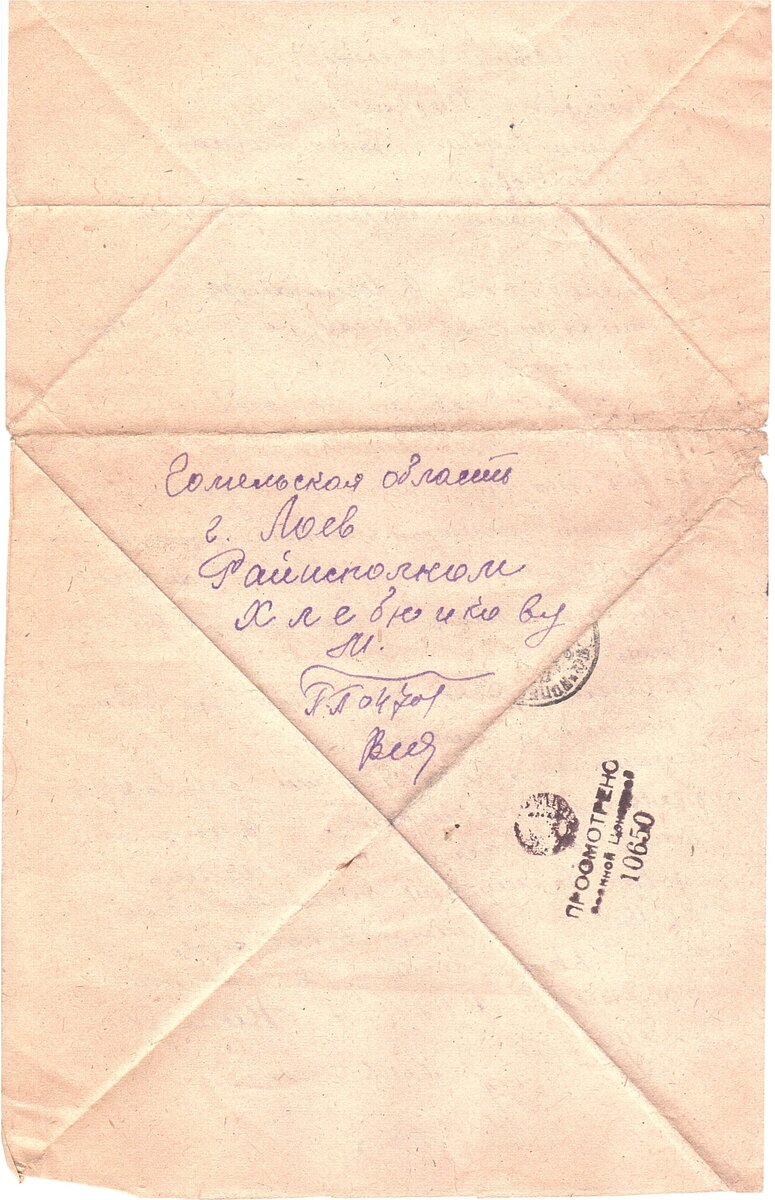 Гомельская область
г. Лоев
Райисполком
Хлебникову
М.
ПП 04701
ПРОСМОТРЕНО
Военной Цензурой
10650